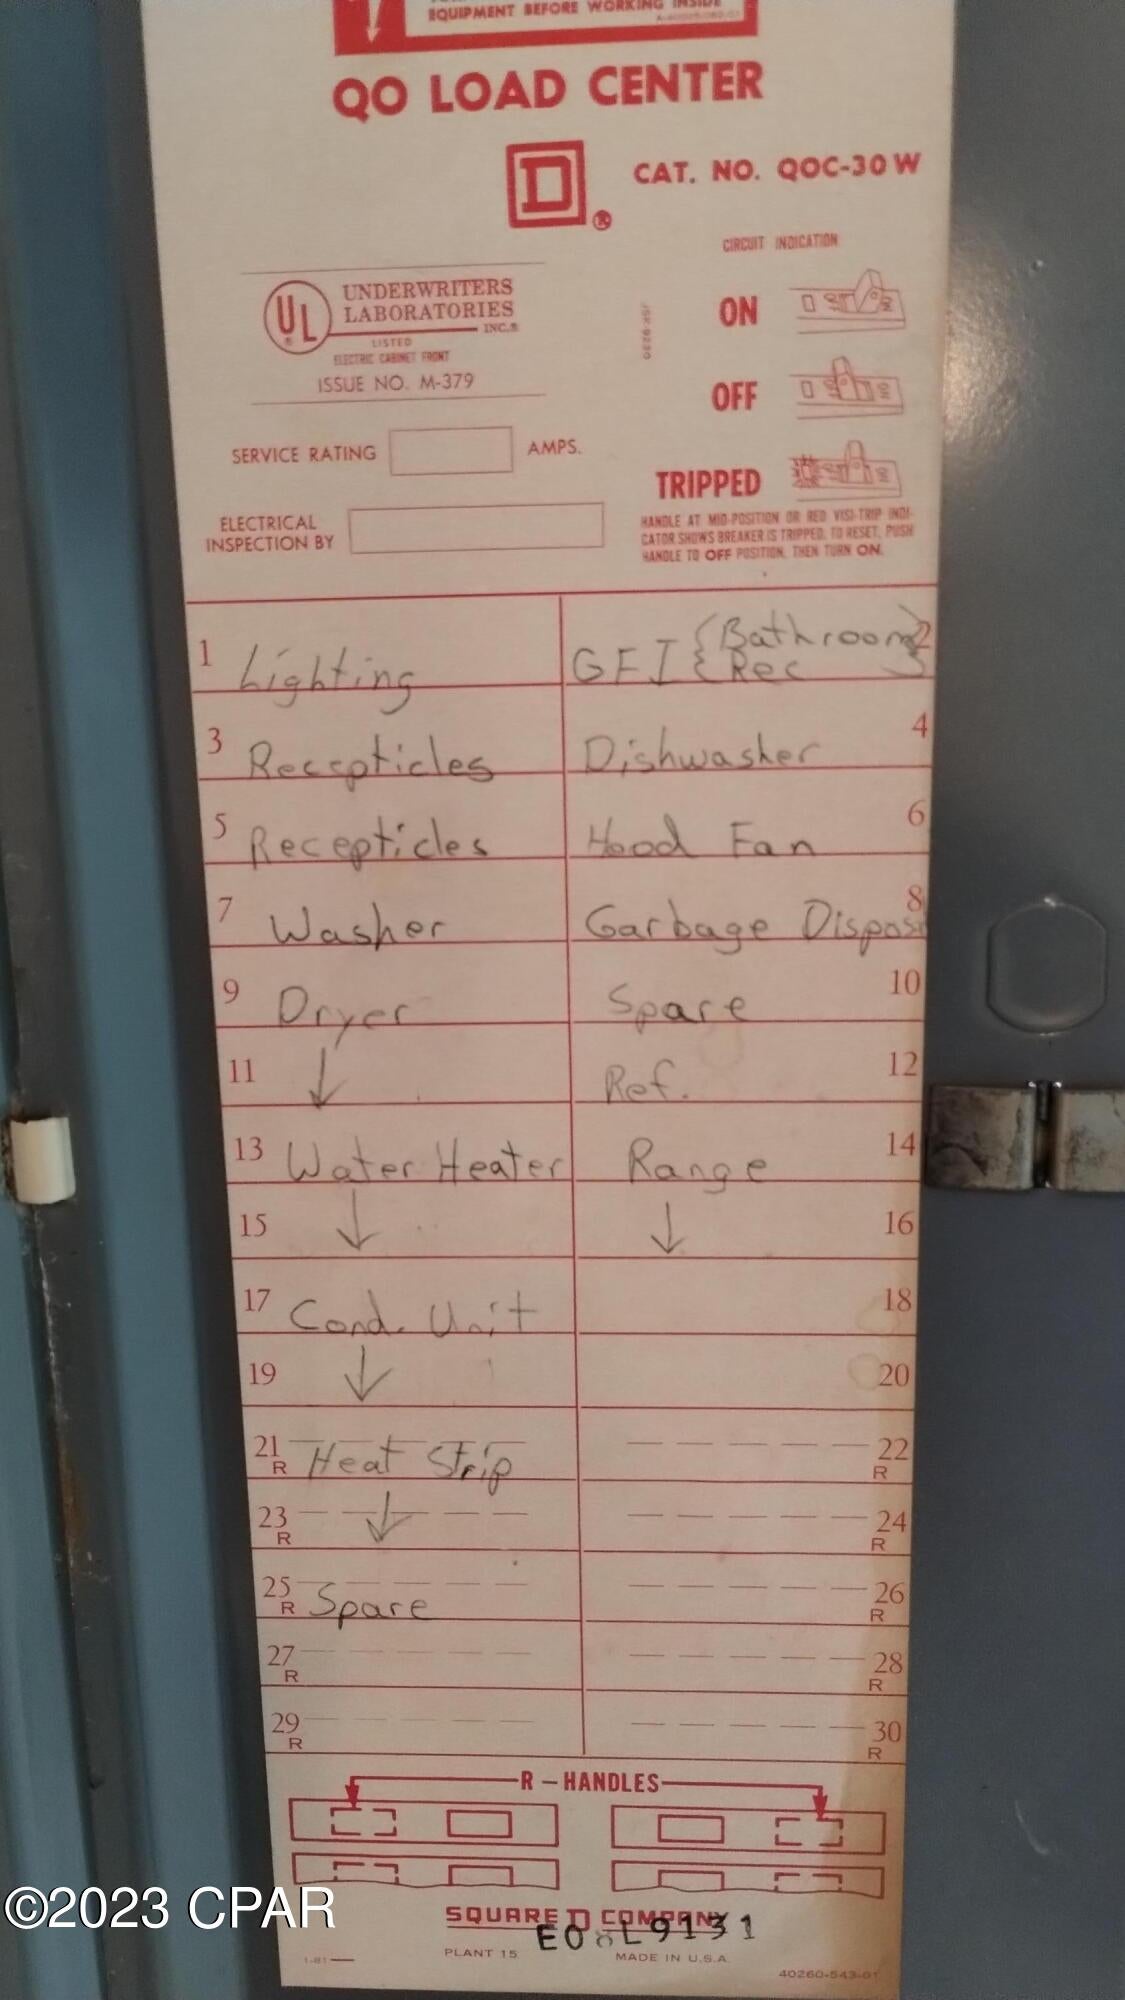 EQUIPMENT BEFORE WORKING INSIDE
QO LOAD CENTER
D ®
CAT. NO. QOC-30 W
CIRCUIT INDICATION
UL ®
UNDERWRITERS
LABORATORIES
INC.®
LISTED
ELECTRIC CABINET FRONT
ISSUE NO. M-379
ON
OFF
SERVICE RATING AMPS.
TRIPPED
ELECTRICAL
INSPECTION BY
HANDLE AT MID-POSITION OR RED VISI-TRIP INDI-
CATOR SHOWS BREAKER IS TRIPPED. TO RESET, PUSH
HANDLE TO OFF POSITION, THEN TURN ON.
1 Lighting GFI { Bathroom } 2
Rec
3 Recepticles Dishwasher 4
5 Recepticles Hood Fan 6
7 Washer Garbage Disposal 8
9 Dryer Spare 10
11 ↓ Ref. 12
13 Water Heater Range 14
15 ↓ ↓ 16
17 Cond. Unit 18
19 ↓ 20
21 R Heat Strip 22 R
23 R ↓ 24 R
25 R Spare 26 R
27 R 28 R
29 R 30 R
R - HANDLES
SQUARE D COMPANY
PLANT 15 MADE IN U.S.A.
1-81
40260-543-01
©2023 CPAR